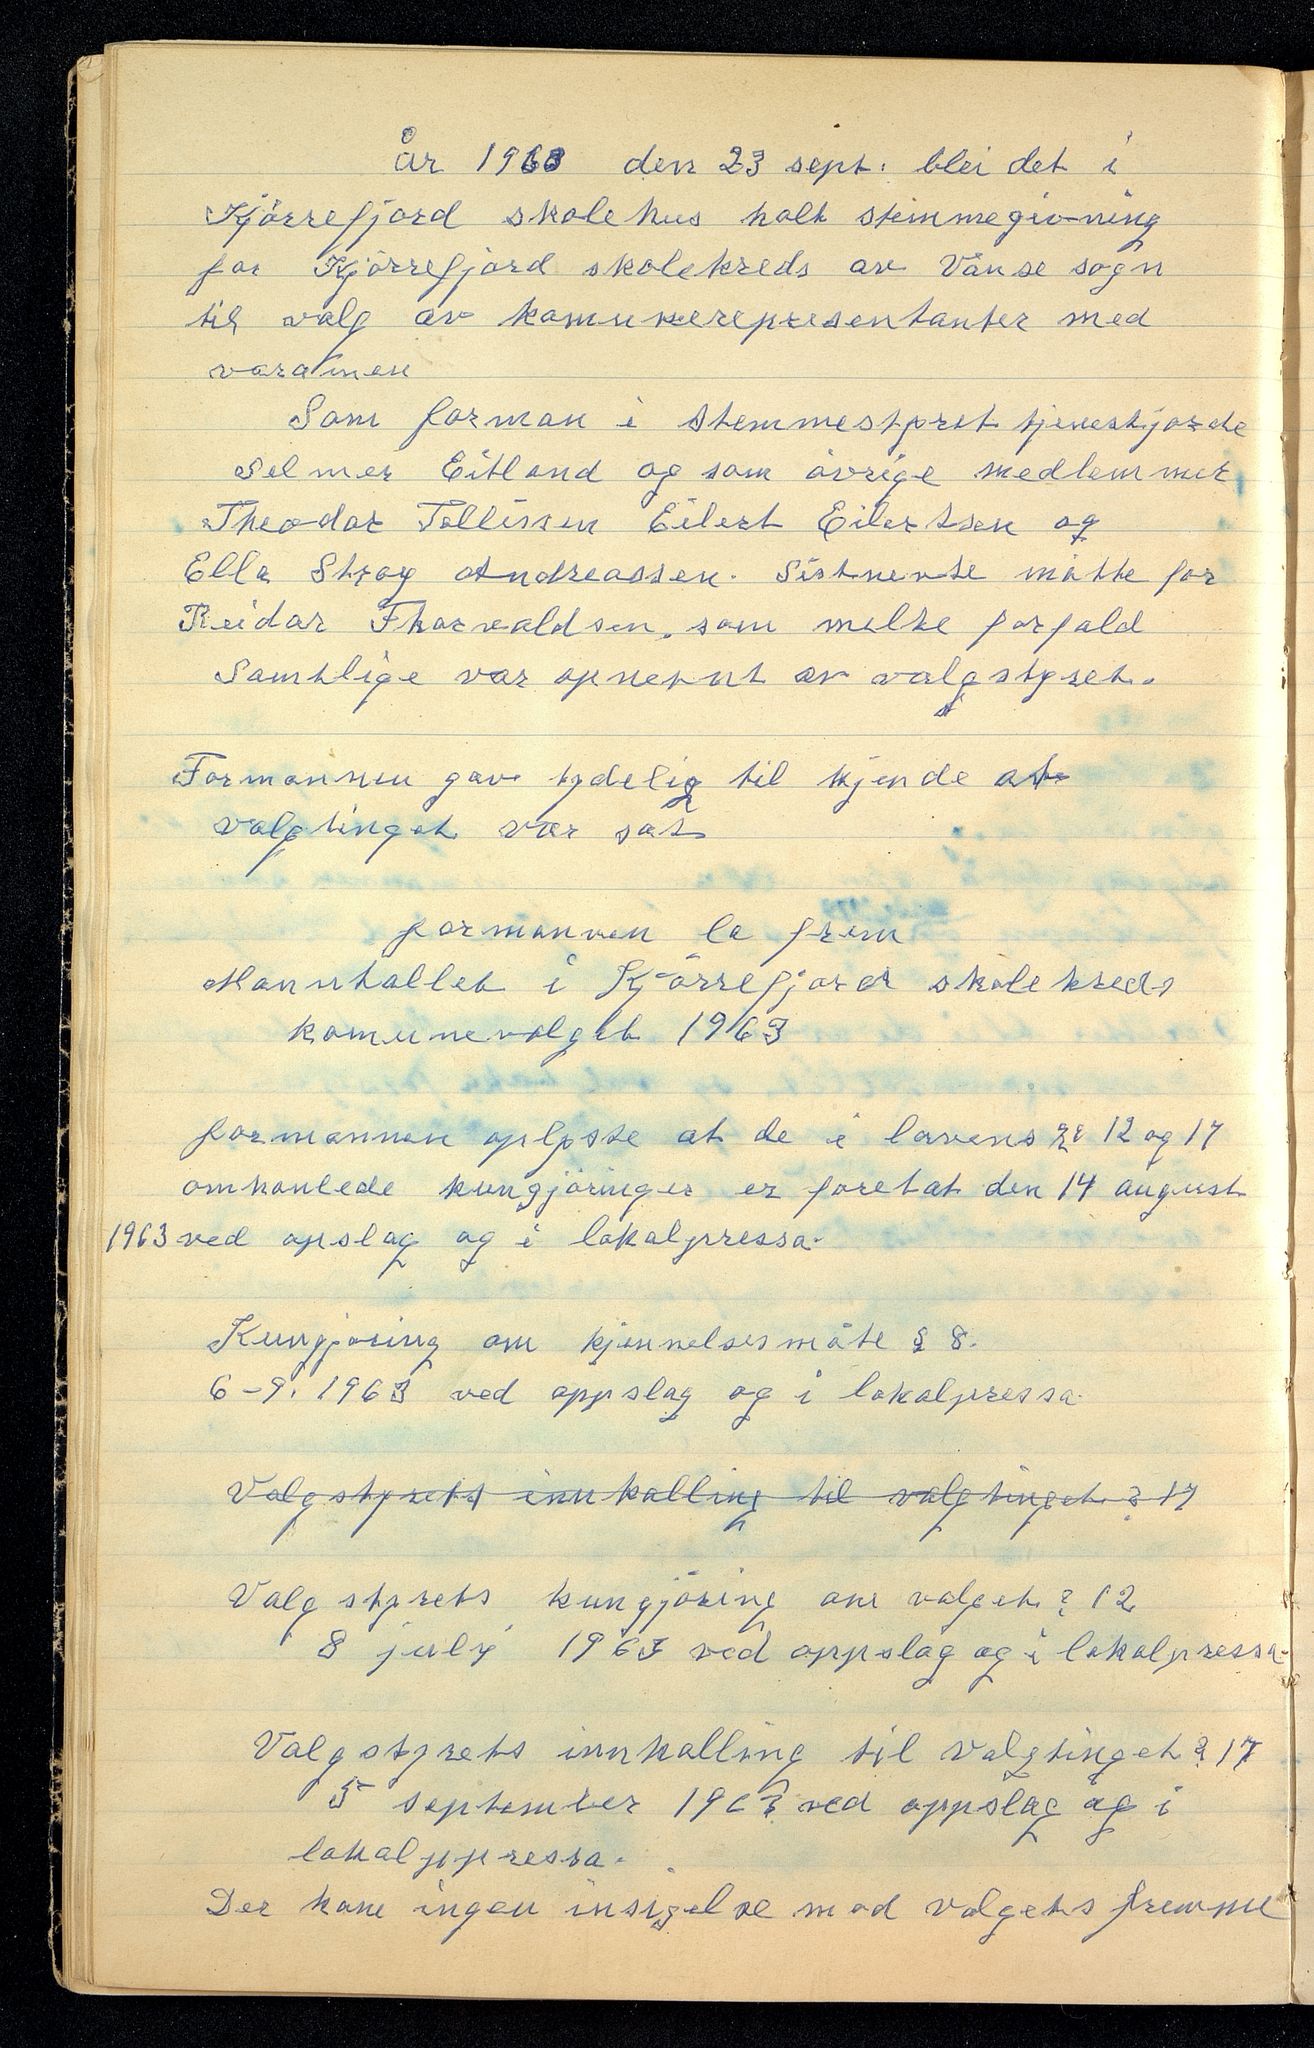 År 1963 den 23 sept. blei det i
Kjörrefjord skolehus holt stemmegivning
for Kjörrefjord skolekreds av Vanse sogn
til valg av komunerepresentanter med
varamen
Som forman i stemmestyret tjenestgjorde
Selmer Eitland og som övrige medlemmer
Theodor Tollisen Eilert Eilertsen og
Ella Stray Andreassen. Sistnevte mötte for
Reidar Thorvaldsen. som melte forfald
Samtlige var opnevnt av valgstyret.
Formannen gav tydelig til kjende at
valgtinget var sat
formannen la frem
Manntallet i Kjörrefjord skolekreds
komunevalget 1963
formannen oplyste at de i lovens §§ 12 og 17
omhanlede kungjöringer er foretat den 14 august
1963 ved opslag og i lokalpressa.
Kungjöring om kjennelsesmåte § 8.
6-9. 1963 ved oppslag og i lokalpressa.
Valgstyrets innkalling til valgtinget § 17
Valgstyrets kungjöring om valget § 12
8 july 1963 ved oppslag og i lokalpressa.
Valgstyrets innkalling til valgtinget § 17
5 september 1963 ved oppslag og i
lokalpppressa.
Der kom ingen insigelse mod valgets fremme